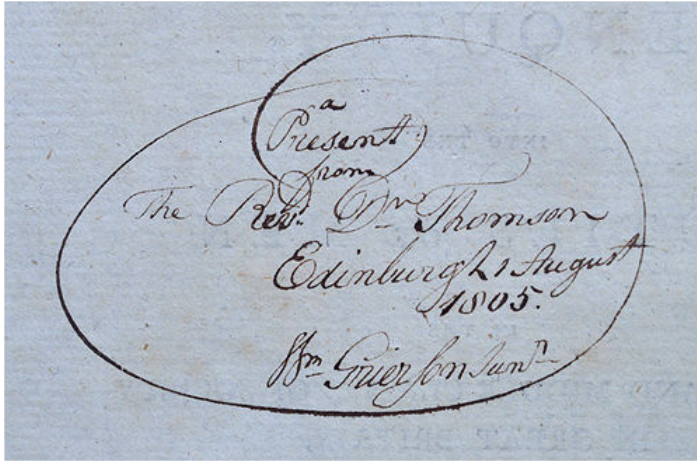 a
Present
from
The Revd. Dr. Thomson
Edinburgh 1 August
1805.
Wm Grierson Junr